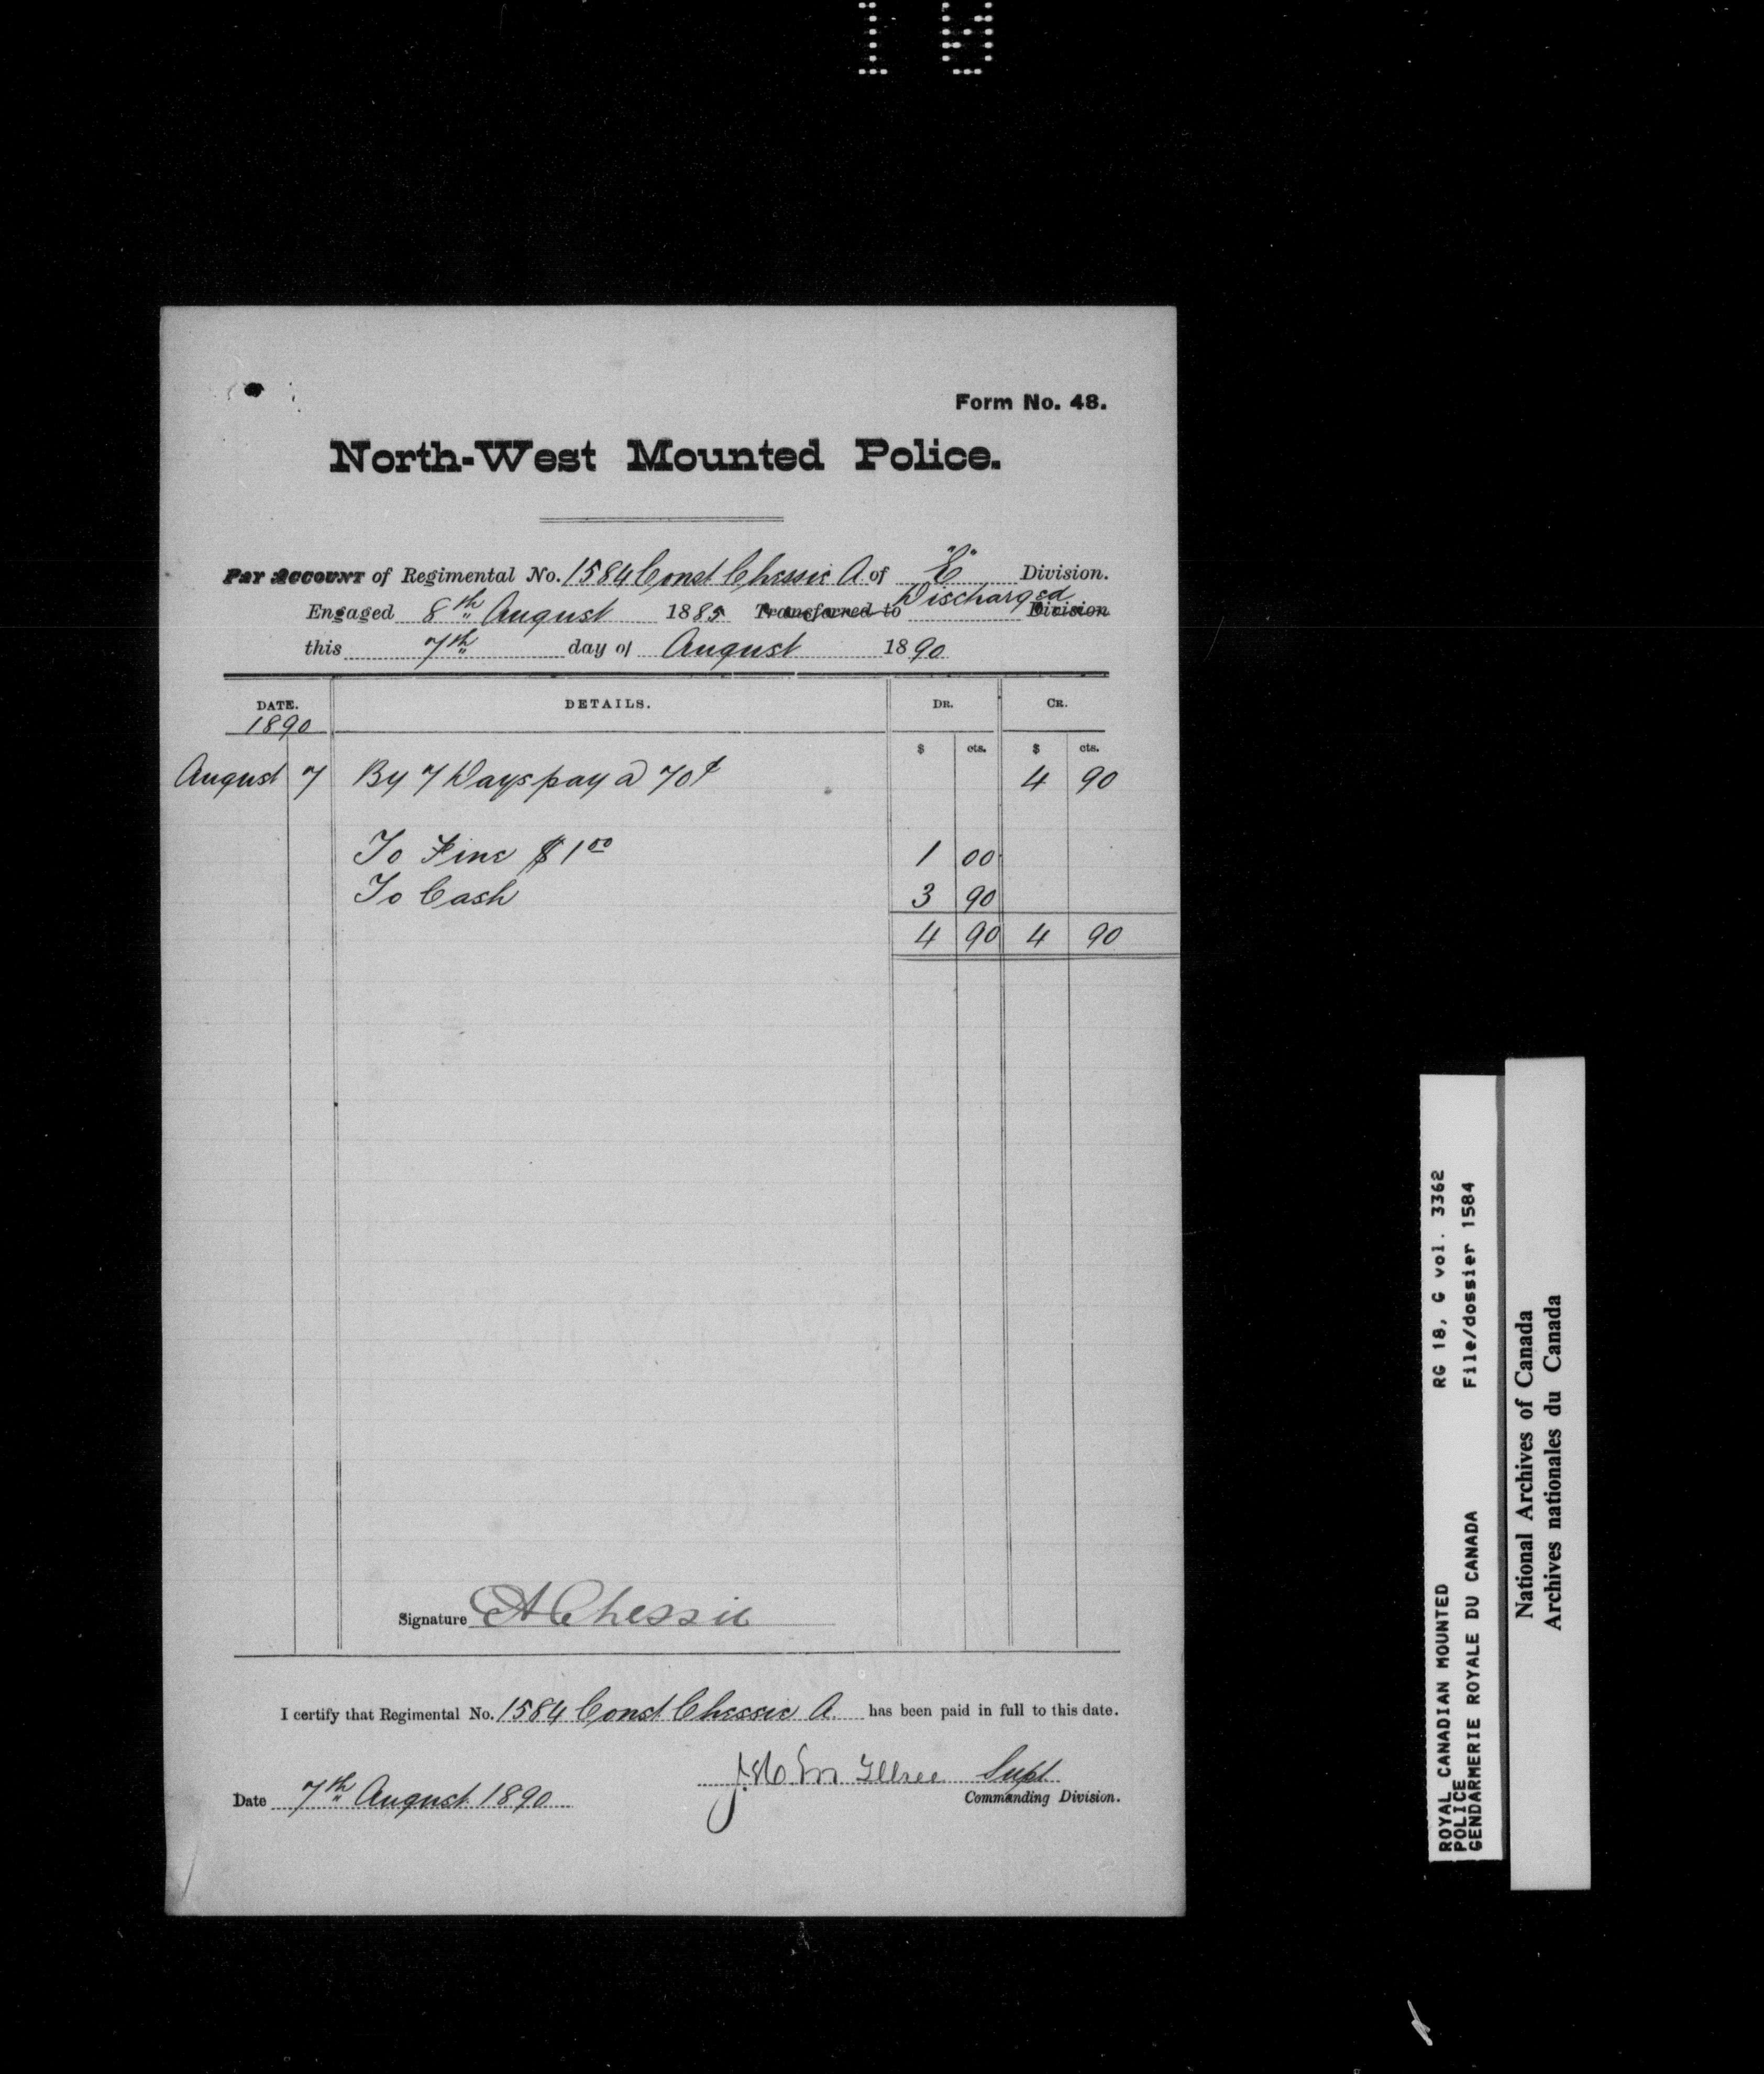 10
Form No. 48.
North-West Mounted Police.
Pay Account of Regimental No. 1584 Const Chessie A. of "E" Division.
Engaged 8th August 1885 Transferred to Discharged Division
this 7th day of August 1890
DATE. DETAILS. DR. CR.
1890
$ cts. $ cts.
August 7 By 7 Days pay @ 70¢ 4 90
To Fine $1.00 1 00
To Cash 3 90
4 90 4 90
Signature A Chessie
I certify that Regimental No. 1584 Const. Chessie A. has been paid in full to this date.
Supt
Date 7th August 1890 Commanding Division.
ROYAL CANADIAN MOUNTED RG 18, G vol. 3362
POLICE File/dossier 1584
GENDARMERIE ROYALE DU CANADA
National Archives of Canada
Archives nationales du Canada